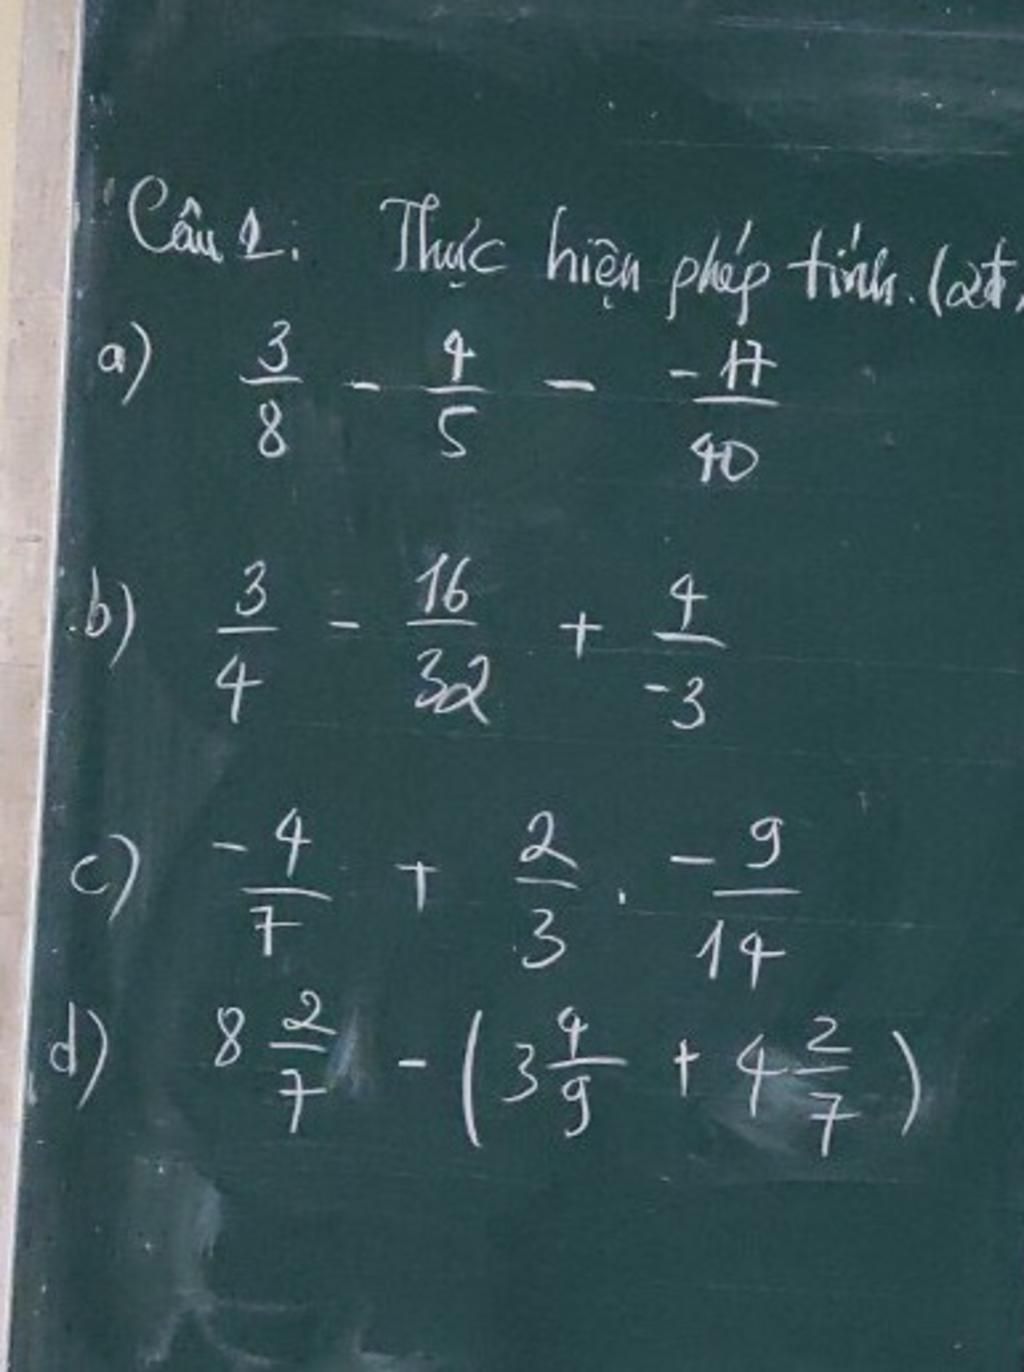 Câu 1: Thực hiện phép tính. (2đ
a) 3/8 - 4/5 - -17/40
b) 3/4 - 16/32 + 4/-3
c) -4/7 + 2/3 . -9/14
d) 8 2/7 - (3 4/9 + 4 2/7)